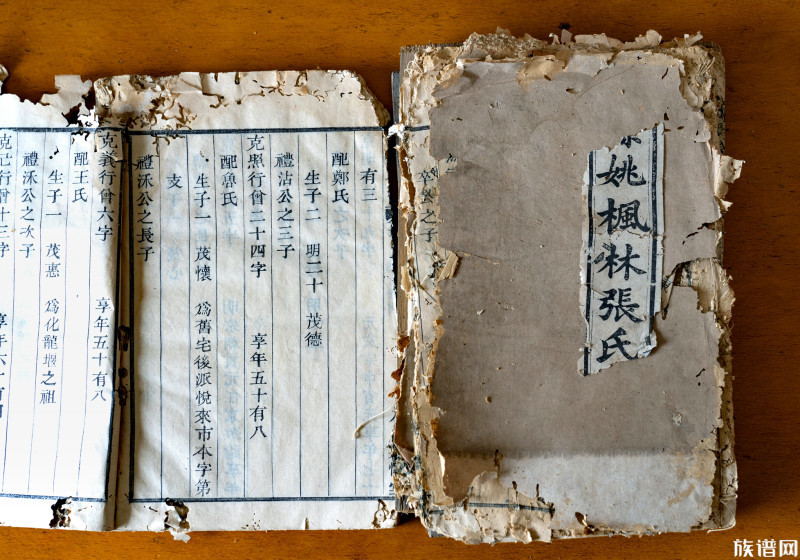 姚楓林張氏
公之子
有三
配鄭氏
生子二 明二十 茂德
禮沾公之三子
克照行曾二十四字 享年五十有八
配魯氏
生子一 茂懷 爲舊宅後派悅來市本字第
支
禮沃公之長子
行曾六字 享年五十有八
配王氏
生子一 茂惠 爲化龍堰之祖
禮沃公之次子
行曾十三字 享年六十有四
族谱网